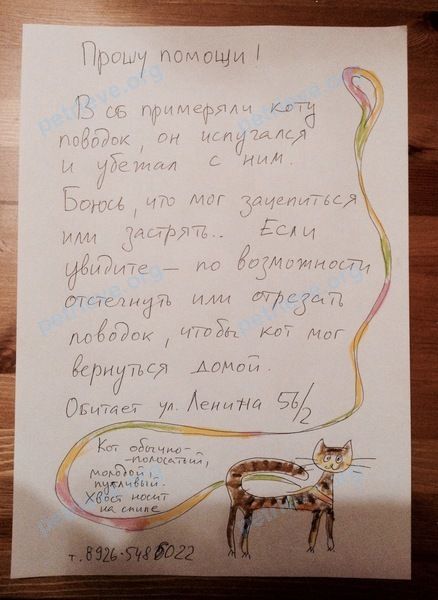 Прошу помощи!
В сб примеряли коту
поводок, он испугался
и убежал с ним.
Боюсь, что мог зацепиться
или застрять.. Если
увидите – по возможности
отстегнуть или отрезать
поводок, чтобы кот мог
вернуться домой.
Обитает ул. Ленина 56/2
Кот обычно-
-полосатый,
молодой,
пугливый.
Хвост носит
на спине
т. 8926·548 6022
petrieve.org
petrieve.org
petrieve.org
petrieve.org
petrieve.org
petrieve.org